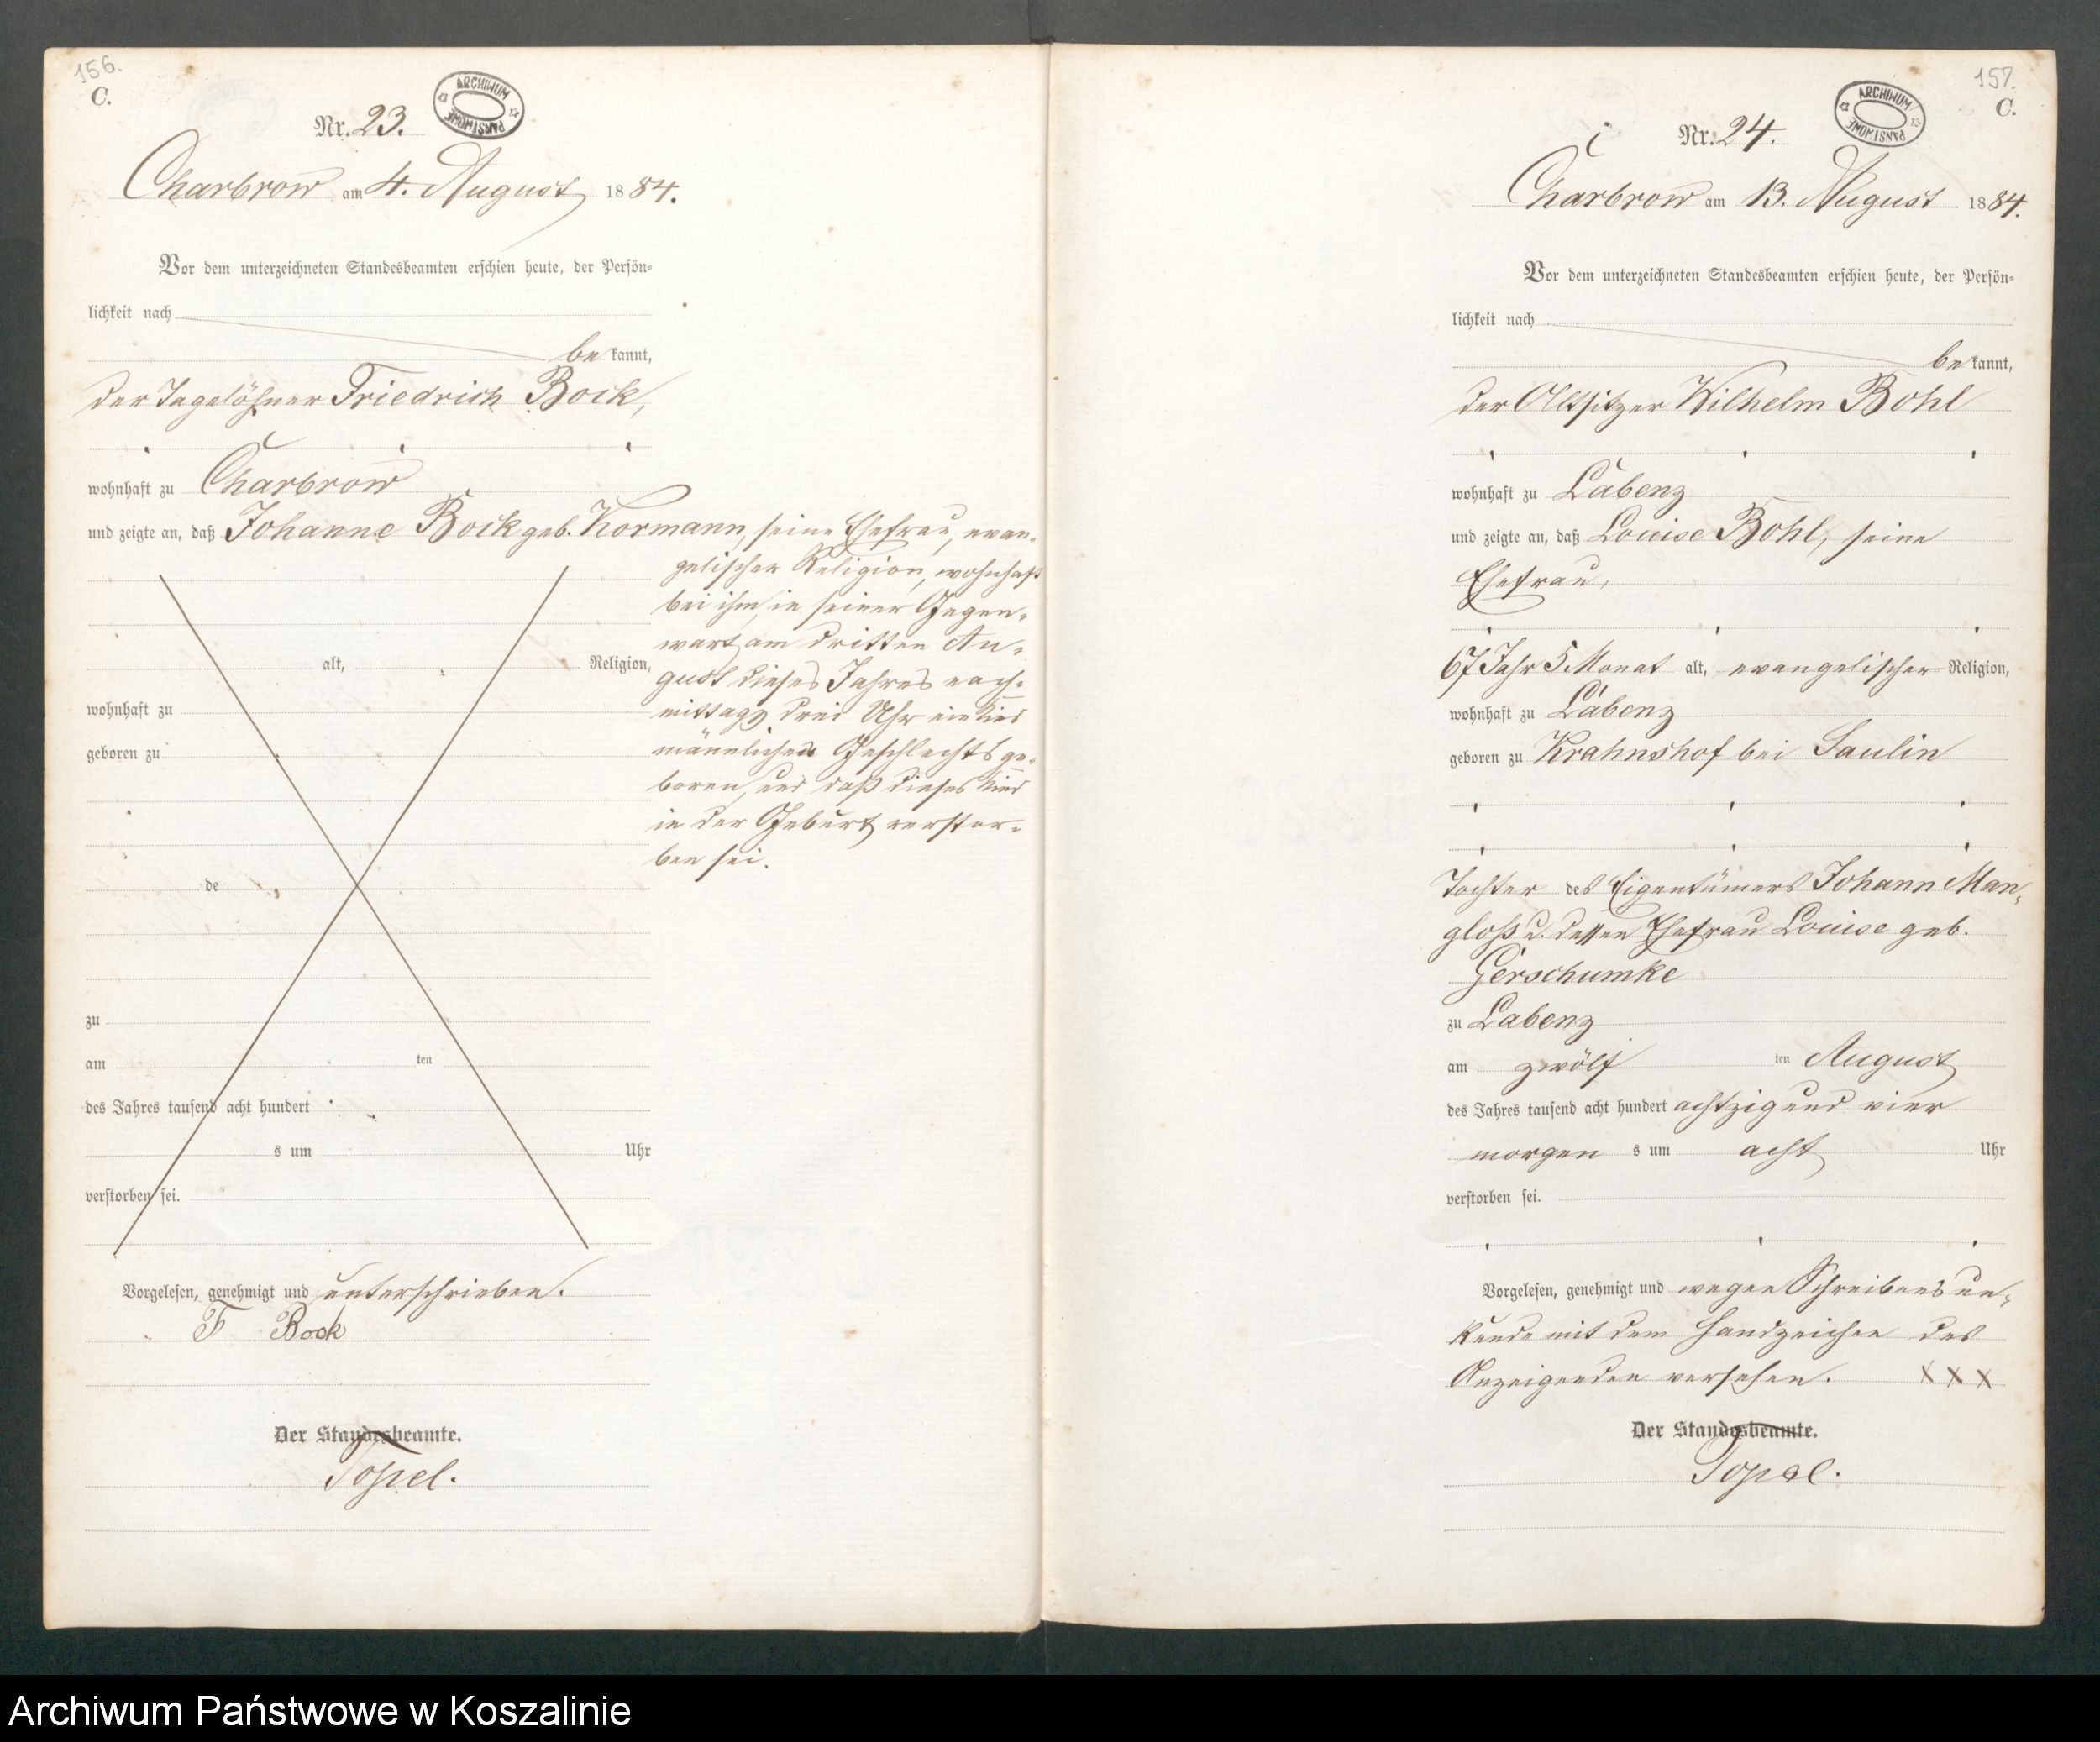 156.
C.
ARCHIWUM PAŃSTWOWE
Nr. 23.
Charbrow am 4. August 1884.
Vor dem unterzeichneten Standesbeamten erschien heute, der Persön=
lichkeit nach
bekannt,
der Tagelöhner Friedrich Bock,
wohnhaft zu Charbrow
und zeigte an, daß Johanne Bock geb. Kormann, seine Ehefrau, evan=
gelischer Religion, wohnhaft
bei ihm, in seiner Gegen=
wart, am dritten Au=
gust dieses Jahres nach=
mittags drei Uhr ein Kind
männlichen Geschlechts ge=
boren, und daß dieses Kind
in der Geburt verstor=
ben sei.
alt, Religion,
wohnhaft zu
geboren zu
de
zu
am ten
des Jahres tausend acht hundert
s um Uhr
verstorben sei.
Vorgelesen, genehmigt und unterschrieben.
F Bock
Der Standesbeamte.
Topel.
157.
C.
ARCHIWUM PAŃSTWOWE
Nr. 24.
Charbrow am 13. August 1884.
Vor dem unterzeichneten Standesbeamten erschien heute, der Persön=
lichkeit nach
bekannt,
der Altsitzer Wilhelm Bohl
wohnhaft zu Labenz
und zeigte an, daß Louise Bohl, seine
Ehefrau,
67 Jahr 5 Monat alt, evangelischer Religion,
wohnhaft zu Labenz
geboren zu Krahnshof bei Saulin
Tochter des Eigentümers Johann Man=
gloß u. dessen Ehefrau Louise geb.
Gerschumke
zu Labenz
am zwölf ten August
des Jahres tausend acht hundert achtzig und vier
morgens um acht Uhr
verstorben sei.
Vorgelesen, genehmigt und wegen Schreibens un=
kunde mit dem Handzeichen des
Anzeigenden versehen. XXX
Der Standesbeamte.
Topel.
Archiwum Państwowe w Koszalinie